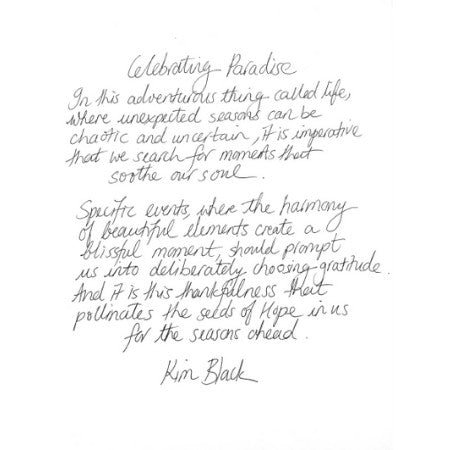 Celebrating Paradise
In this adventurous thing called life,
where unexpected seasons can be
chaotic and uncertain, it is imperative
that we search for moments that
soothe our soul.
Specific events, where the harmony
of beautiful elements create a
blissful moment, should prompt
us into deliberately choosing gratitude.
And it is this thankfulness that
pollinates the seeds of Hope in us
for the seasons ahead.
Kim Black